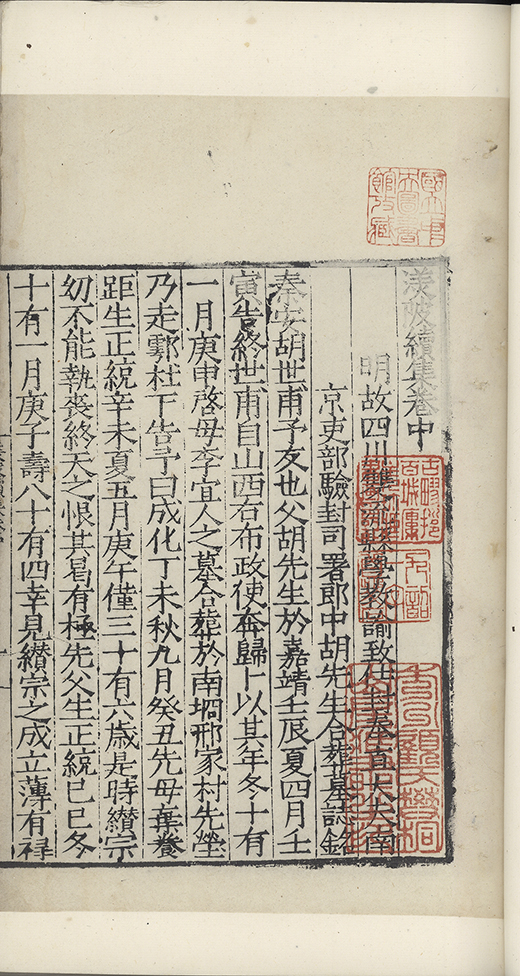 國立中央圖書館收藏
渼陂續集卷中
明故四川雙縣學教諭致仕封奉直大夫南
京吏部驗封司署郎中胡先生合葬墓誌銘
秦安胡世甫予友也父胡先生於嘉靖壬辰夏四月壬
寅告終世甫自山西右布政使奔歸卜以其年冬十有
一月庚申啓母李宜人之墓合葬於南堈邢家村先塋
乃走鄠杜下告予曰成化丁未秋九月癸丑先母棄養
距生正統辛未夏五月庚午僅三十有六歲是時纘宗
幼不能執喪終天之恨其曷有極先父生正統己巳冬
十有一月庚子壽八十有四幸見纘宗之成立薄有祿